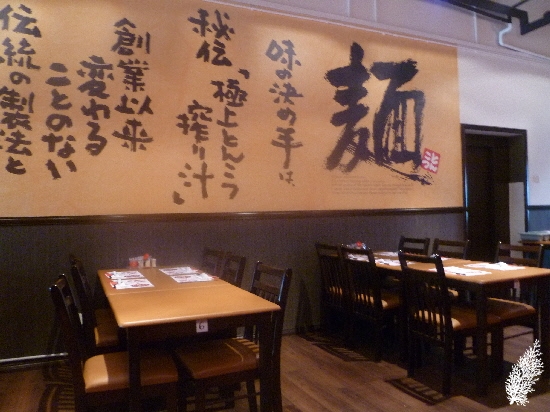 麺
味の決め手は、
秘伝「極上とんこつ
搾り汁」
創業以来
変わる
ことのない
伝統の製法と